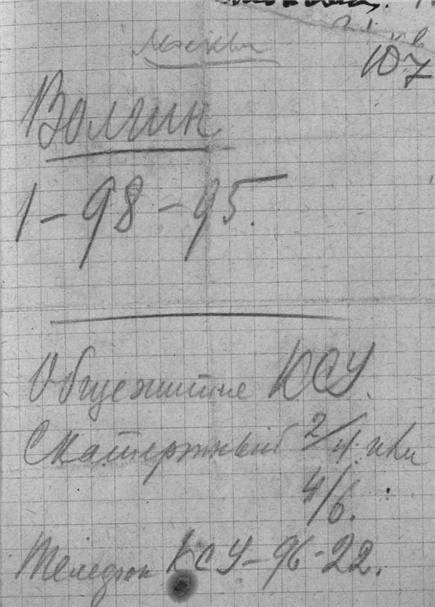 107
Москва
Волгин
1-98-95.
Общежитие КСУ.
Скатертный 2/4 или
4/6.
Телефон КСУ-96-22.